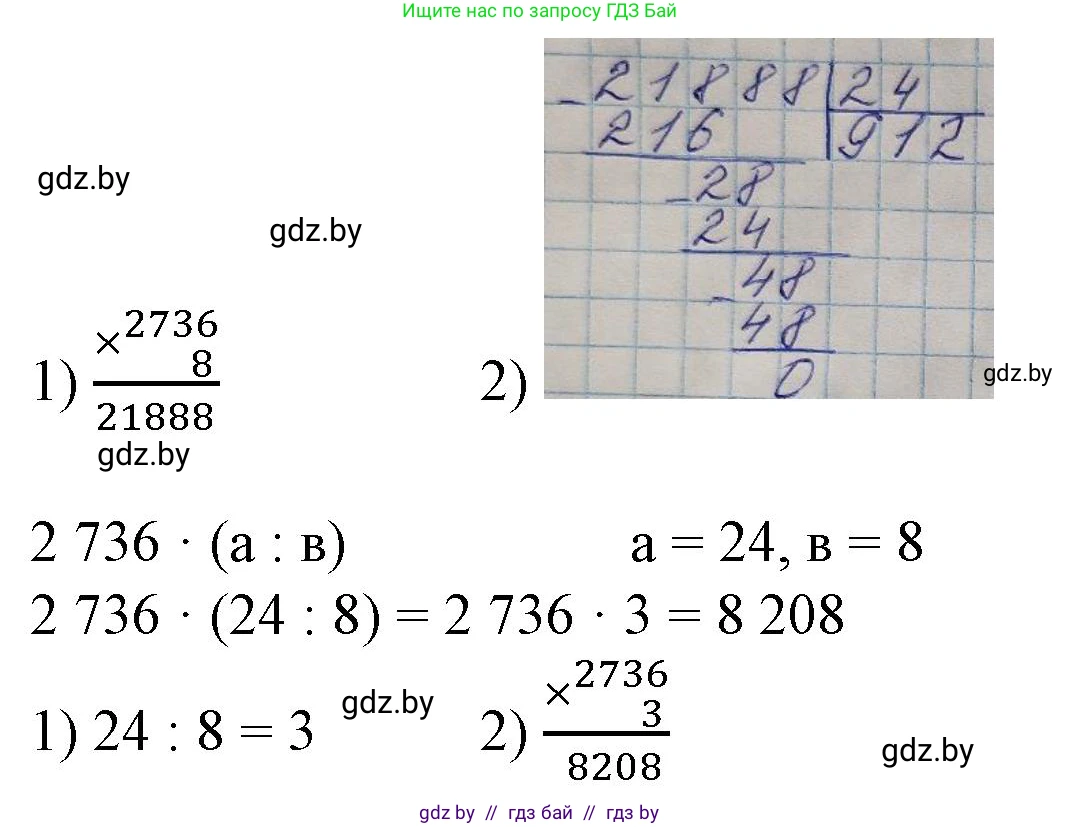 Ищите нас по запросу ГДЗ Бай
gdz.by
gdz.by
1) ×2736
8
21888
gdz.by
2) -21888 | 24
216 | 912
-28
24
-48
48
0
gdz.by
2 736 · (а : в) а = 24, в = 8
2 736 · (24 : 8) = 2 736 · 3 = 8 208
1) 24 : 8 = 3
gdz.by
2) ×2736
3
8208
gdz.by
gdz by // гдз бай // гдз by